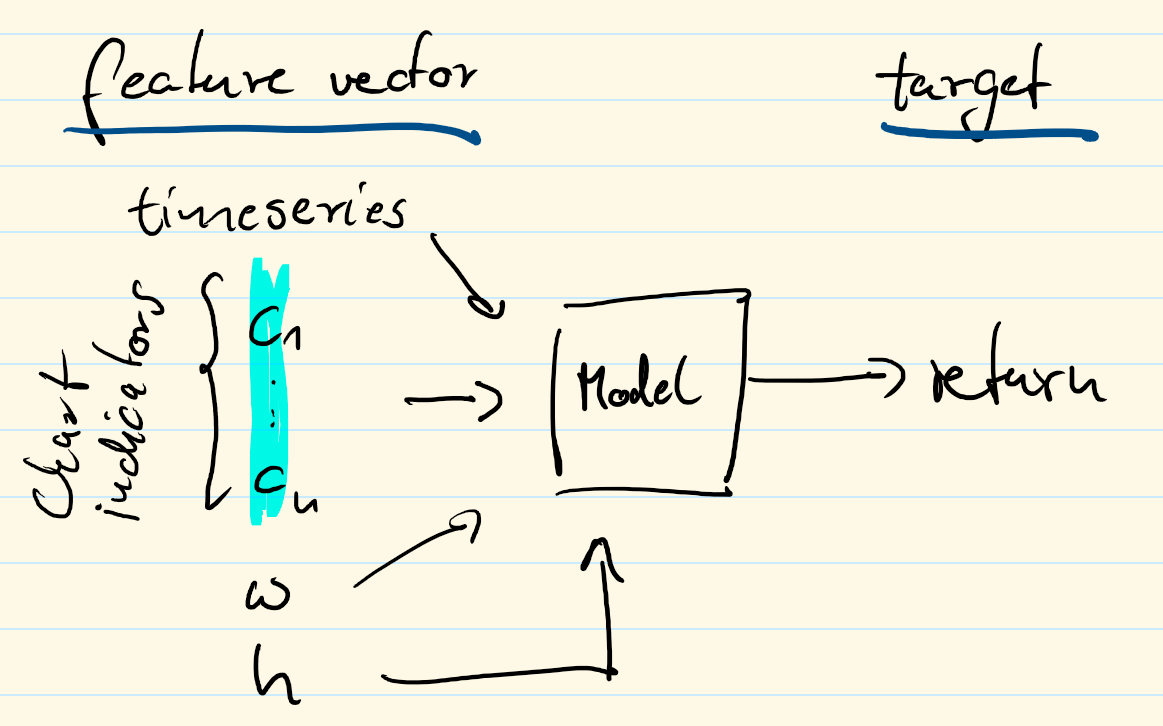 feature vector
target
timeseries
Chart
indicators
C1
⋮
Cn
Model
return
ω
h